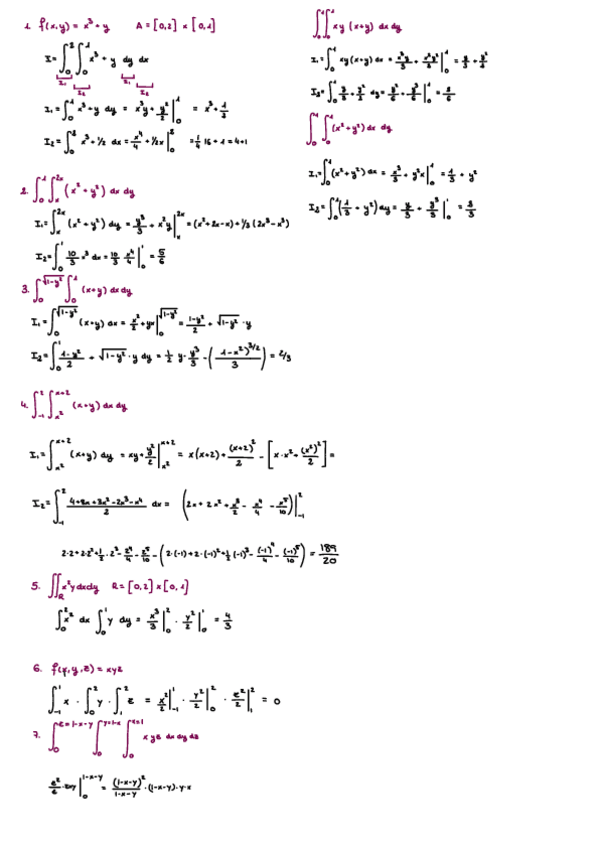 1. f(x,y) = x³+y A = [0,2] × [0,1]
I = ∫₀² ∫₀¹ x³ + y dy dx
I₁ I₂ I₁ I₂
I₁ = ∫₀¹ x³+y dy = x³y + y²/2 |₀¹ = x³ + 1/2
I₂ = ∫₀² x³ + 1/2 dx = x⁴/4 + 1/2x |₀² = 1/4 16 + 1 = 4+1
2. ∫₀¹ ∫ₓ²ˣ (x² + y²) dx dy
I₁ = ∫ₓ²ˣ (x² + y²) dy = y³/3 + x²y |ₓ²ˣ = (x²+2x-x) + 1/3 (2x³-x³)
I₂ = ∫₀¹ 10/3 x³ dx = 10/3 x⁴/4 |₀¹ = 5/6
3. ∫₀^√(1-y²) ∫₀¹ (x+y) dx dy
I₁ = ∫₀^√(1-y²) (x+y) dx = x²/2 + yx |₀^√(1-y²) = (1-y²)/2 + √(1-y²) · y
I₂ = ∫₀¹ (1-y²)/2 + √(1-y²) · y dy = 1/2 y · y³/3 - ((1-x²)^(3/2)/3) = 2/3
4. ∫₋₁² ∫ₓ₂ˣ⁺² (x+y) dx dy
I₁ = ∫ₓ₂ˣ⁺² (x+y) dy = xy + y²/2 |ₓ₂ˣ⁺² = x(x+2) + (x+2)²/2 - [x·x² + (x²)²/2] =
I₂ = ∫₋₁² (4+8x+3x²-2x³-x⁴)/2 dx = (2x + 2x² + x³/2 - x⁴/4 - x⁵/10) |₋₁²
2·2+2·2²+1/2·2³-2⁴/4-2⁵/10-(2·(-1)+2·(-1)²+1/2(-1)³-(-1)⁴/4-(-1)⁵/10) = 189/20
5. ∬_R x²y dx dy R = [0,2] × [0,1]
∫₀² x² dx ∫₀¹ y dy = x³/3 |₀² · y²/2 |₀¹ = 4/3
6. f(x,y,z) = xyz
∫₋₁¹ x · ∫₀² y · ∫₁² z = x²/2 |₋₁¹ · y²/2 |₀² · z²/2 |₁² = 0
7. ∫₀^z=1-x-y ∫₀^y=1-x ∫₀^x=1 x yz dx dy dz
z²/2 · xy |₀^1-x-y = (1-x-y)²/(1-x-y) · (1-x-y) · y · x
∫₀¹ ∫₀¹ xy (x+y) dx dy
I₁ = ∫₀¹ xy(x+y) dx = x³y/3 + x²y²/2 |₀¹ = y/3 + y²/2
∫₀¹ ∫₀¹ (x²+y²) dx dy
I₁ = ∫₀¹ (x²+y²) dx = x³/3 + y²x |₀¹ = 1/3 + y²
I₂ = ∫₀¹ (1/3 + y²) dy = y/3 + y³/3 |₀¹ = 2/3